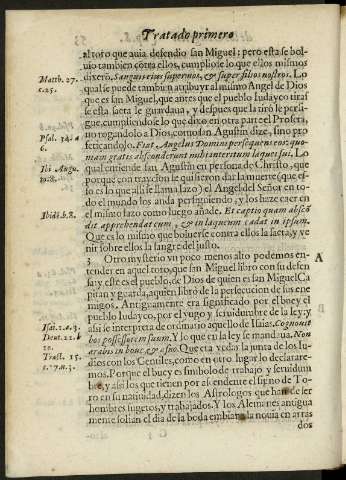 Tratado primero
al toro que auia defendio san Miguel: pero esta se bol-
uio tambien cōtra ellos, cumpliose lo que ellos mismos
Matth. 27. c. 25.
dixerō. Sanguis eius super nos, & super filios nostros. Lo
qual se puede tambien atribuyr al mismo Angel de Dios
que es san Miguel, que antes que el pueblo Iudayco tiras
se esta saeta le guardaua, y despues que la tirò le persi-
gue, cumpliendose lo que dixo en otra parte el Profeta,
Psal. 34. a 6.
no rogandolo a Dios, como san Agustin dize, sino pro
fetizandolo. Fiat Angelus Domini persequens eos: quo-
niam gratis absconderunt mihi interitum laquei sui. Lo
Ibi Augu.
qual entiende san Agustin en persona de Christo, que
porque con traycion le quisieron dar la muerte (que es-
so es lo que alli se llama lazo) el Angel del Señor en to-
do el mundo los anda persiguiendo, y los haze caer en
Ibidē. b. 8.
el mismo lazo como luego añade. Et captio quam abscō
dit apprehendat eum, & in laqueum cadat in ipsum.
Que es lo mismo que boluerse contra ellos la saeta, y ve
nir sobre ellos la sangre del justo.
3 Otro mysterio vn poco menos alto podemos en- A
tender en aquel toro, que san Miguel libro con su defen
sa, y este es el pueblo, de Dios de quien es san Miguel Ca
pitan y guarda, aquien librò de la persecucion de sus ene
migos. Antiguamente era significado por el buey el
pueblo Iudayco, por el yugo y seruidumbre de la ley: y
Isai. 1. a. 3.
assi se interpreta de ordinario aquello de Isaias. Cognouit
Deut. 22. b 10.
bos possessorem suum. Y lo que en la ley se mandaua. Non
arabis in boue, & asino. Que era vedar la junta de los Iu-
Tract. 15. c. 7. n. 3.
dios con los Gentiles, como en otro lugar lo declarare-
mos. Porque el buey es simbolo de trabajo y seruidum
bre, y assi los que tienen por ascendente el signo de To-
ro en su natiuidad, dizen los Astrologos que han de ser
hombres sugetos, y trabajados. Y los Alemanes antigua
mente solian el dia de la boda embiar a la nouia en arras
dos